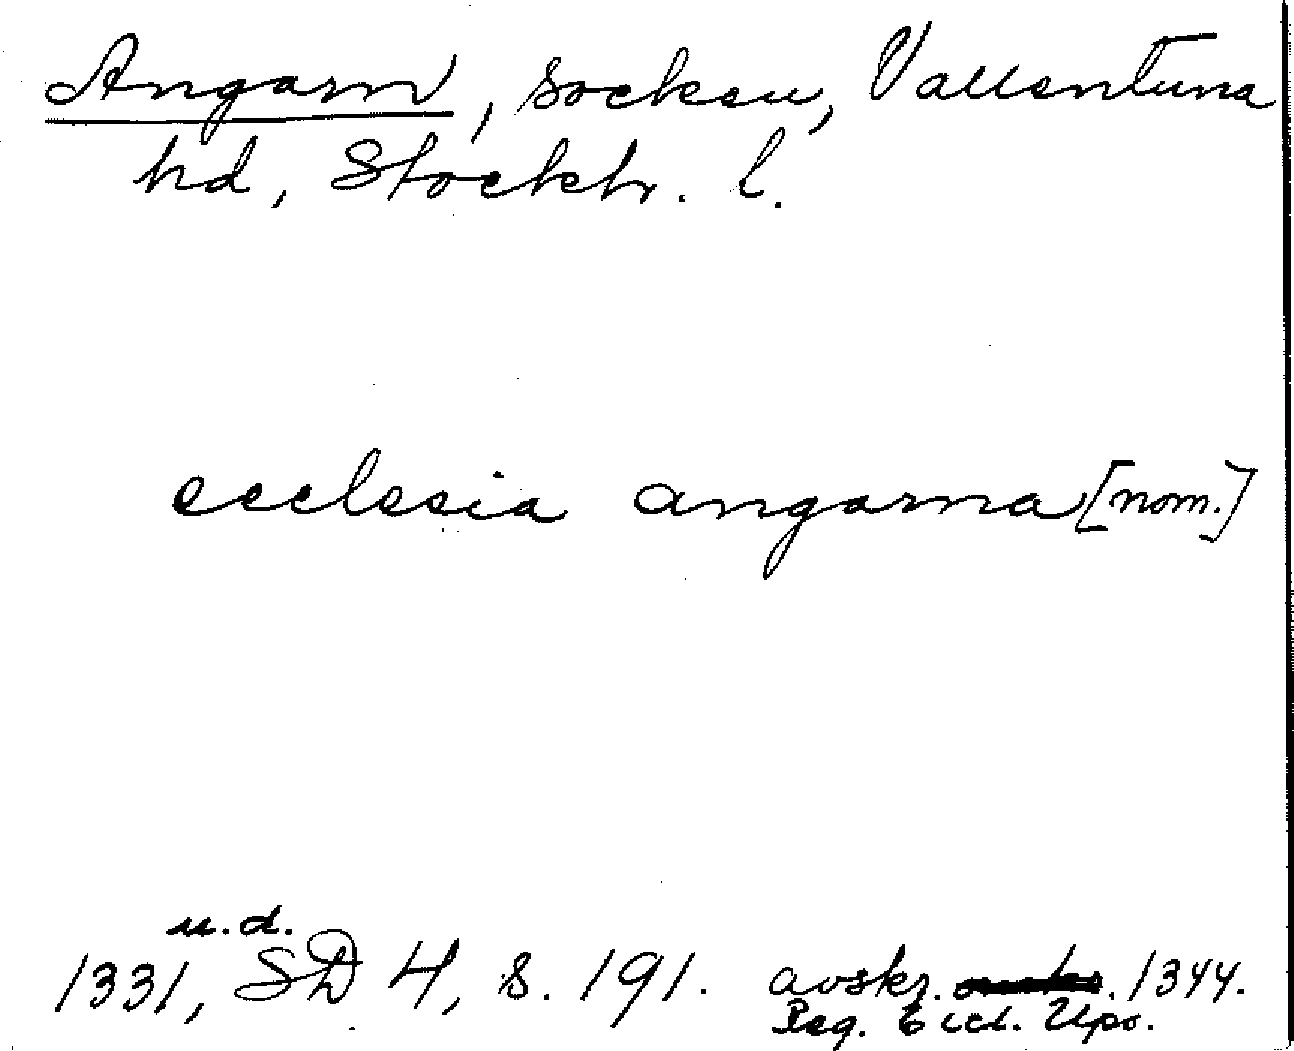 Angarn, socken, Vallentuna
hd, Stockh. l.
ecclesia angarna [nom.]
u.d.
1331, SD 4, s. 191. avskr. 1344.
Reg. Eccl. Ups.